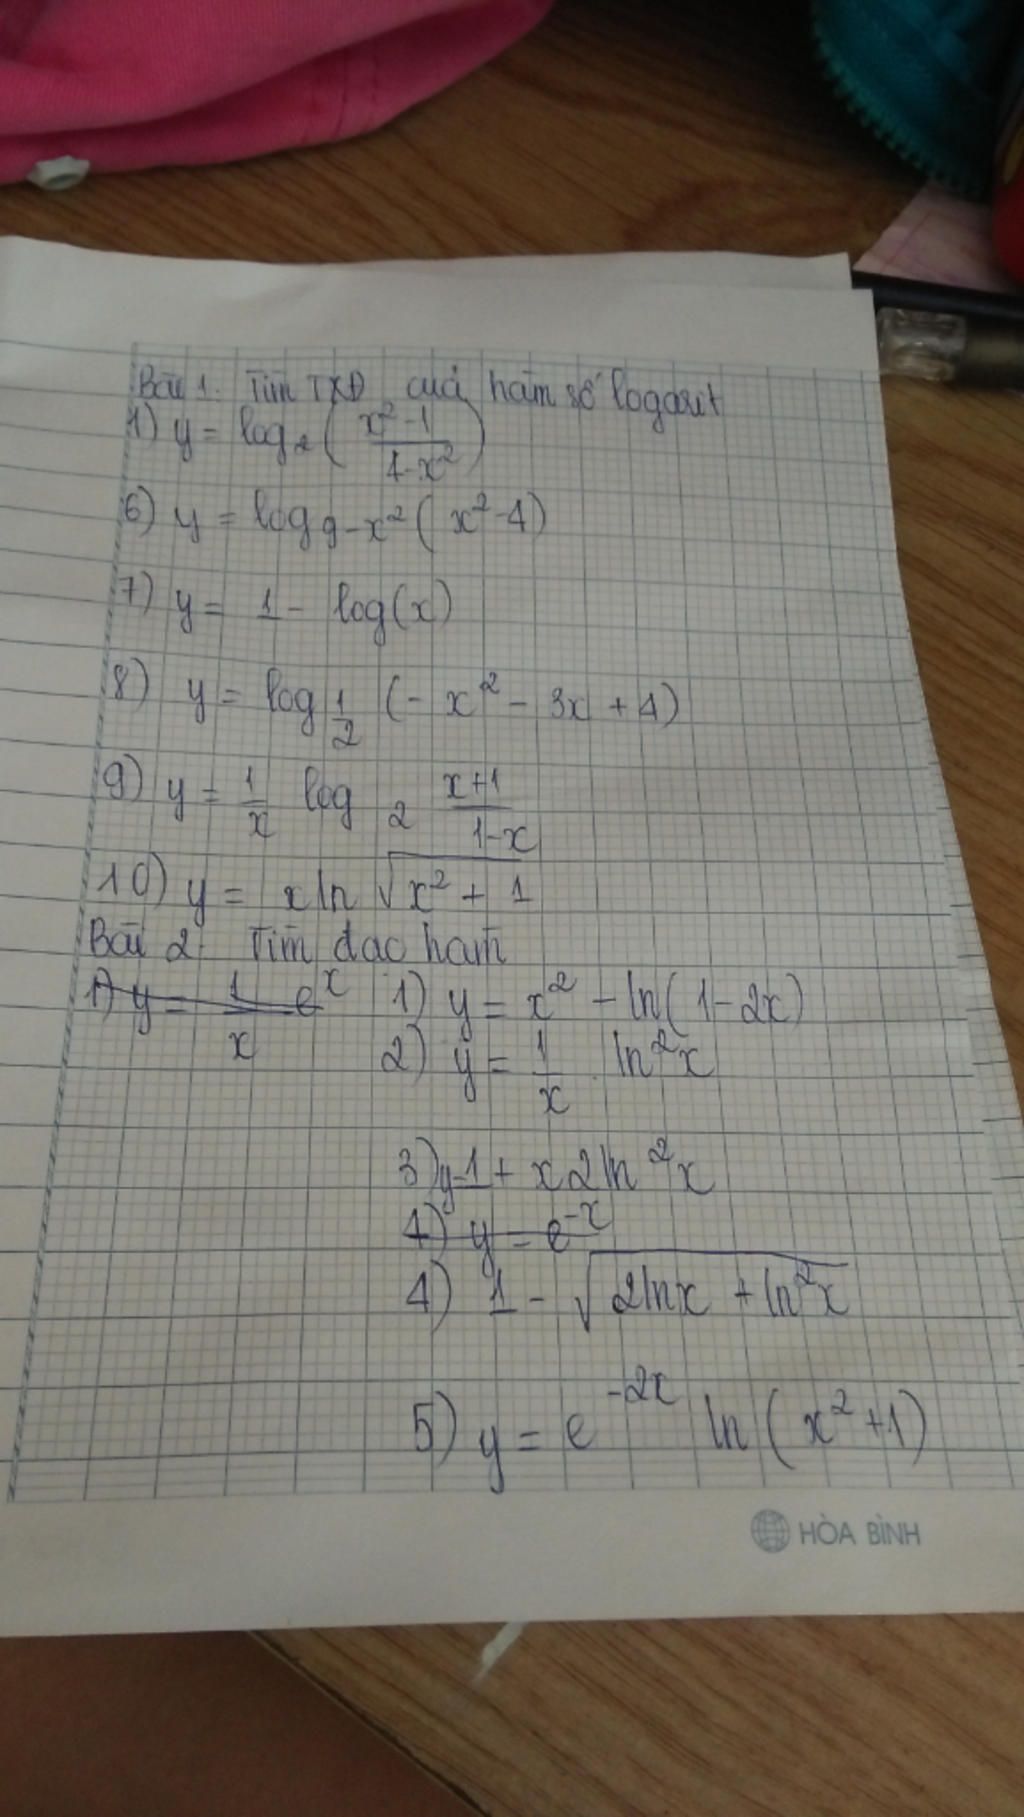 Bài 1. Tìm TXĐ của hàm số logarit
1) y = log₂ ( (x² - 1)/(4 - x²) )
6) y = log_{9-x²} ( x² - 4)
7) y = 1 - log(x)
8) y = log_{1/2} (- x² - 3x + 4)
9) y = 1/x log₂ (x+1)/(1-x)
10) y = x ln √(x² + 1)
Bài 2. Tìm đạo hàm
1) y = 1/x e^x 1) y = x² - ln(1 - 2x)
2) y = 1/x . ln²x
3) y=1 + x2ln²x
4) y = e^{-x}
4) 1 - √(2lnx + ln²x)
5) y = e^{-2x} ln (x² + 1)
HÒA BÌNH